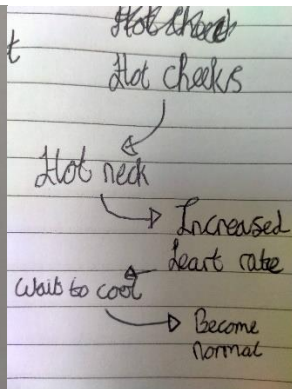 t
Hot cheeks
Hot neck
Increased
heart rate
Wait to cool
Become
normal